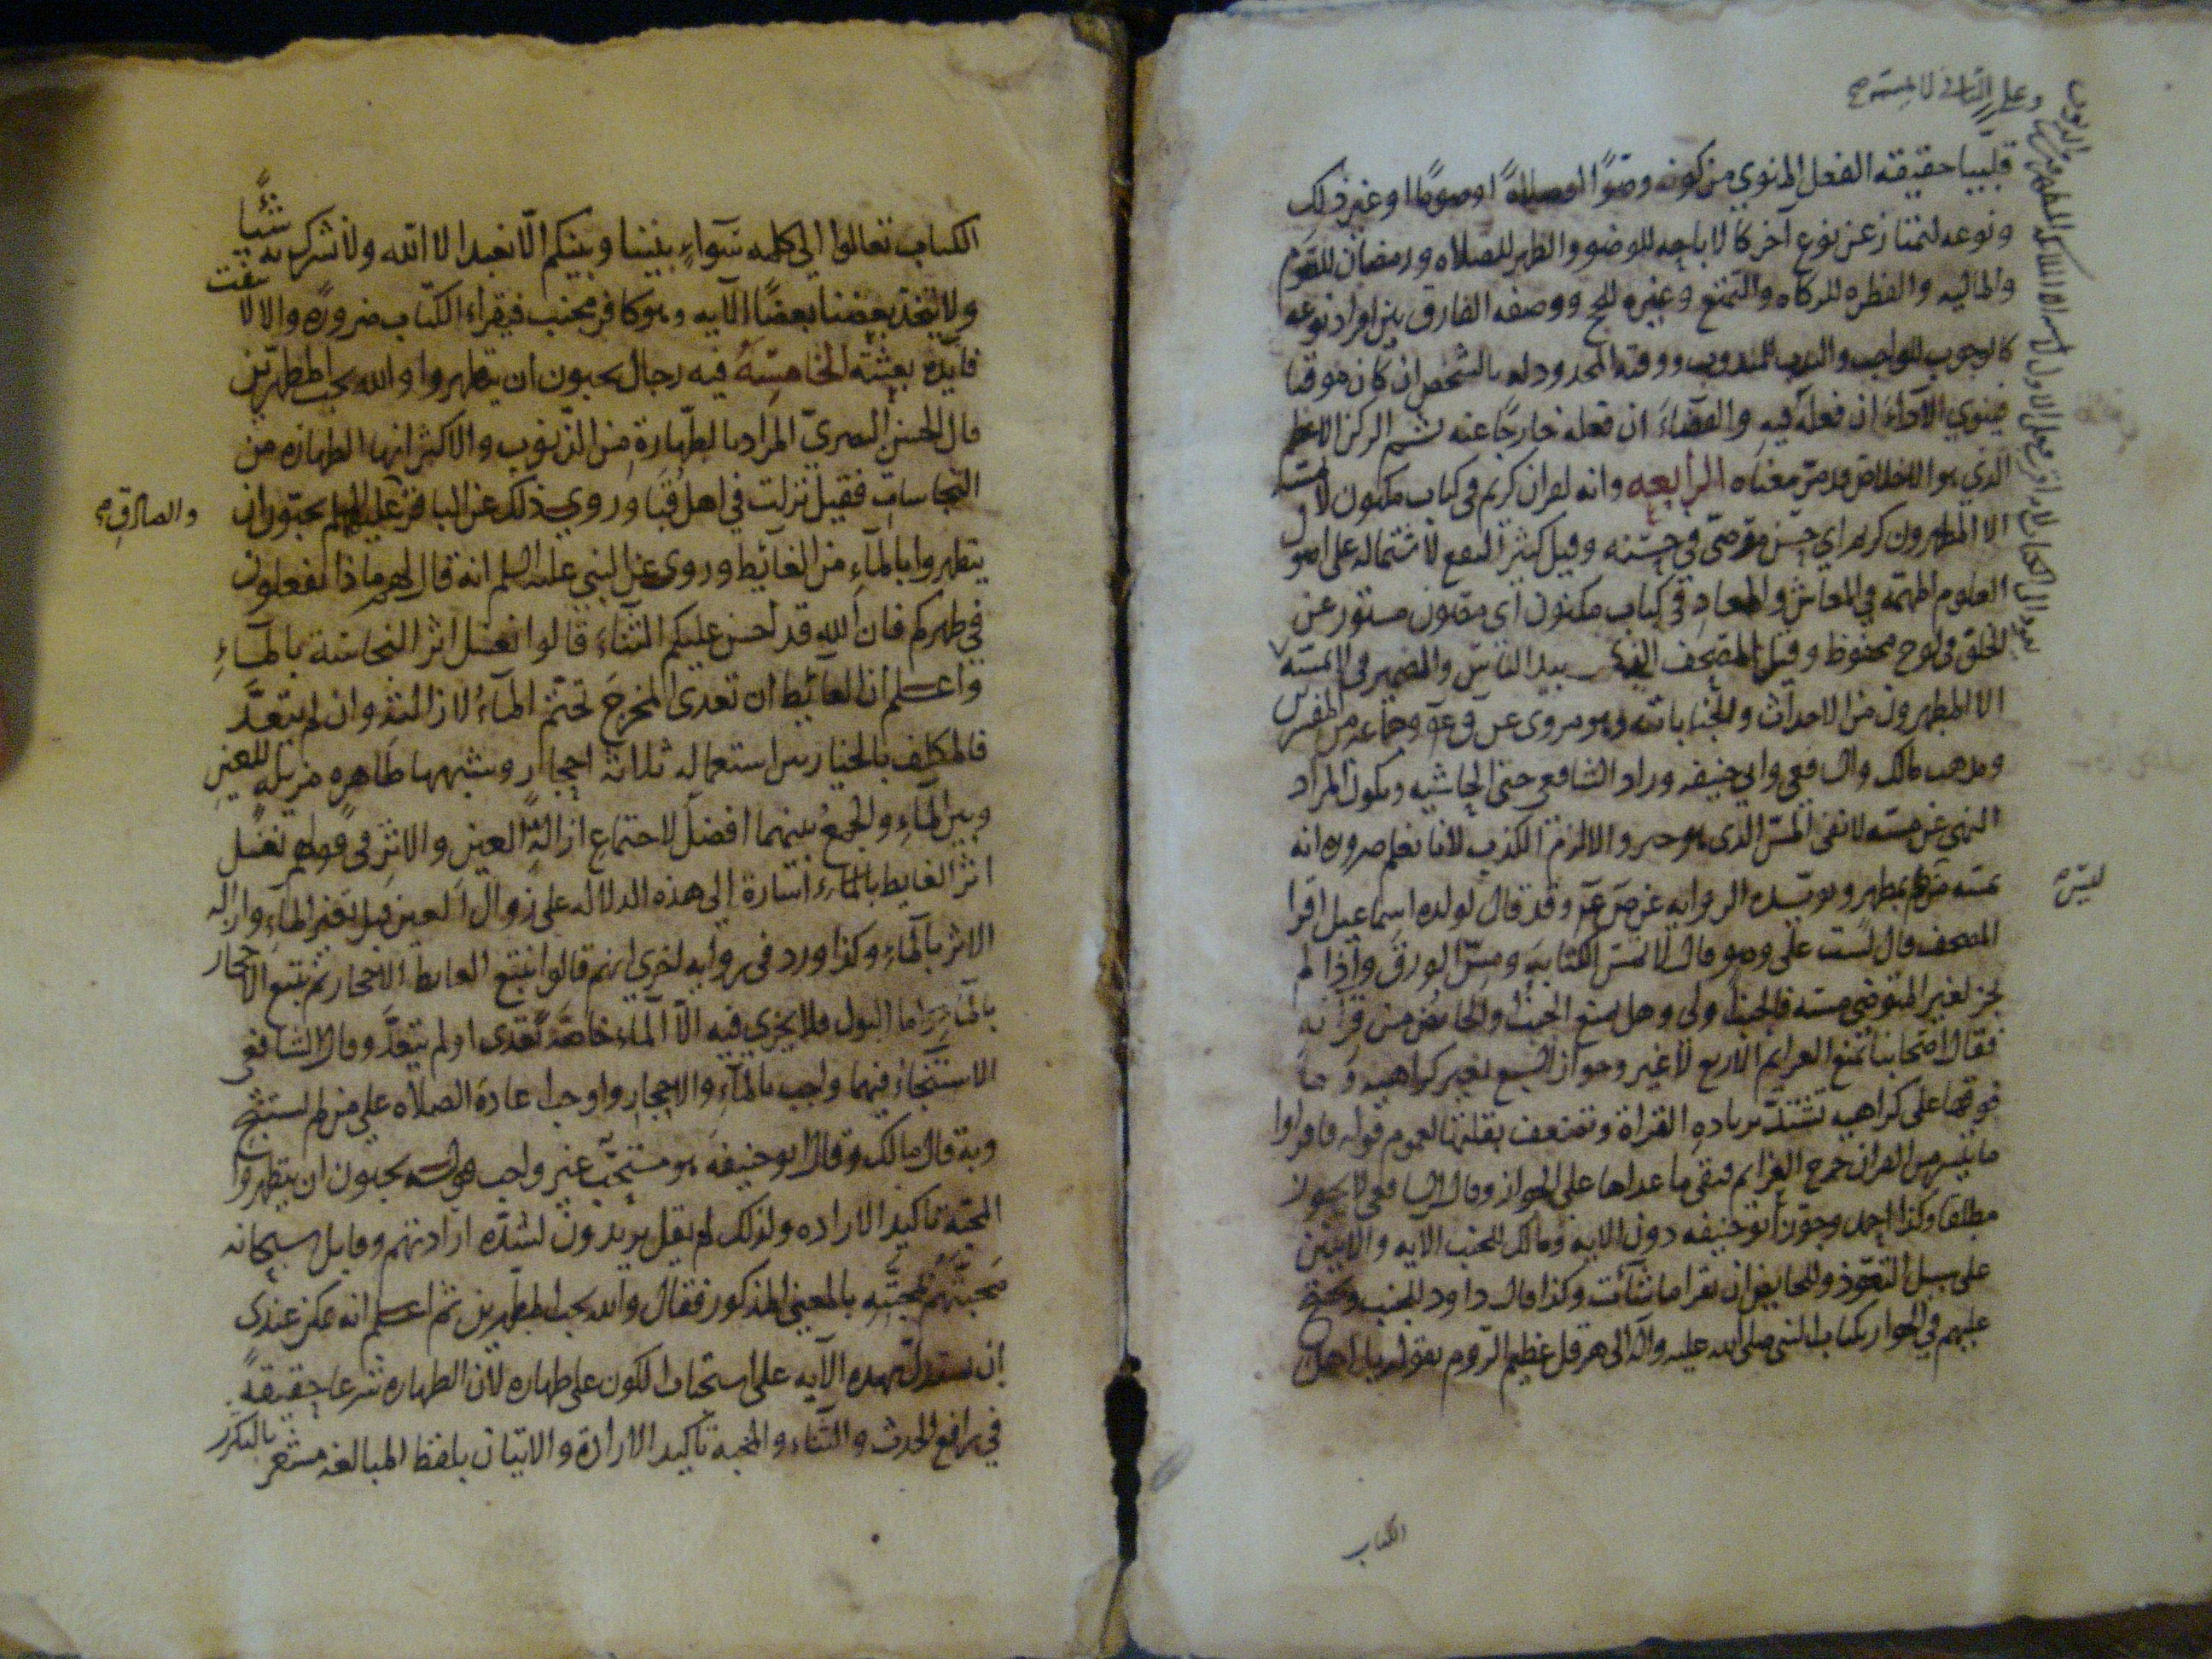 وعلى الثاني لا يمسه
قلبيا حقيقه الفعل المنوي من كونه وضوًا او صلاةً او صومًا او غير ذلك
ونوعه لتمتاز عن نوع آخر كالاباحه للوضو والظهر للصلاه ورمضان للصوم
والماليه والفطره للزكاه والتمتع وغيره للحج ووصفه الفارق بين افراد نوعه
كالوجوب للواجب والندب للمندوب ووقته المحدود له بالشخص ان كان موقتا
فينوي الاداء ان فعله فيه والقضاء ان فعله خارجًا عنه ثم الركن الاعظم
الذي هو الاخلاص وقد مرّ معناه الرابعه وانه لقران كريم في كتاب مكنون لا يمسه
الا المطهرون كريم اي حسن مرضىّ في جنسه وقيل كثير النفع لاشتماله على اصول
العلوم المهمّه في المعاش والمعاد في كتاب مكنون اى مصون مستور عن
الخلق في لوح محفوظ وقيل المصحف الذي بيد الناس والضمير في لا يمسّه
الا المطهرون من الاحداث والجنابات له وهو مروى عن ق عـ وجماعه من المفسرين
ومذهب مالك والشافعي وابي حنيفه وزاد الشافعي حتى الحاشيه ويكون المراد
النهى عن مسه لا نفى المسّ الذى هو خبر والا لزم الكذب لانا نعلم ضروره انه
يمسّه من لم يطهر ويويّده الروايه عن ص عـ وقد قال لولده اسماعيل اقرا
المصحف فقال لست على وضو قال لا تمسّ الكتابه ومسّ الورق واذا لم
يجز لغير المتوضى مسه فالجنب اولى وهل يمنع الجنب والحايض من قرآنه
فقال اصحابنا تمنع العزايم الاربع لا غير وجواز السبع بغير كراهيه وما
فوقها على كراهيه تشتدّ بزيادهِ القراة وتضعف بقلتها لعموم قوله فاقراوا
ما تيسر من القران خرج العزايم فبقى ما عداها على الجواز وقال الشافعي لا يجوز
مطلقا وكذا احمد وجوّز ابو حنيفه دون الايه ومالك للجنب الآيه والايتين
على سبيل التعوّذ وللحايض ان تقرا ما شآءت وكذا قال داود للجنب ويحتج
عليهم في الجواز بكتاب النبي صلى الله عليه وآله الى هرقل عظيم الروم بقوله يا اهل
الكتاب
الكتاب تعالوا الى كلمه سوآءٍ بيننا وبينكم الّا نعبد الا الله ولا نشرك به شئًا
ولا يتخذ بعضنا بعضًا الآيه وهو كافر مجنب فيقراء الكتاب ضرورةً والا لا
فايده بعثه الخامسهُ فيه رجال يحبون ان يتطهروا والله يحب المطهرين
قال الحسن البصريّ المراد بالطّهارةِ من الذّنوب والاكثر انها الطهاره من
النجاسات فقيل نزلت في اهل قُبَا وروي ذلك عن الباقر عليه السلم يحبّون ان
والصادق
يتطهروا بالمآءِ من الغآئط وروى عن النبي عليه السلم انه قال لهم ماذا تفعلون
في طهركم فان الله قد احسن عليكم الثناءَ قالوا نغسل اثر النجاسة بالمآءِ
واعلم ان الغآئط ان تعدى المخرجَ تحتّم المآءُ لازالته وان لم يتعدَّ
فالمكلف بالخيار بين استعماله ثلاثة احجار وشبهها طاهره مزيله للعين
وبين المآءِ والجمعُ بينهما افضل لاجتماع ازالةِ العين والاثرِ في قولهم نغسل
اثر الغايط بالمآء اشارة الى هذه الدلاله على زوال العين قبل بغير المآءِ وازاله
الاثر بالمآءِ وكذا ورد في روايه اخرى انهم قالوا نتبع الغايط الاحجار ثم نتبع الاحجار
بالمآءِ واما البول فلا يجزي فيه الّا المآء خاصّه تعدى او لم يتعدَّ وقال الشافعى
الاستنجاءُ فيهما واجب بالمآءِ والاحجار واوجب اعادة الصلاه على من لم يستنج
وبه قال مالك وقال ابو حنيفه هو مستحبّ غير واجب قوله يحبون ان يتطهروا
المحبّه تاكيد الاراده ولذلك لم يقل يريدون لشدّه ارادتهم وقابل سبحانه
محبتهُم محبّتِه بالمعنى المذكور فقال والله يحب المطهرين ثم اعلم انه يمكن عندى
ان يستدل بهذه الآيه على استحباب الكون على طهاره لان الطهاره شرعا حقيقهً
في رافع الحدث والثناء والمحبه تاكيد الارادة والاتيان بلفظ المبالغه مشعر بالتكرّر